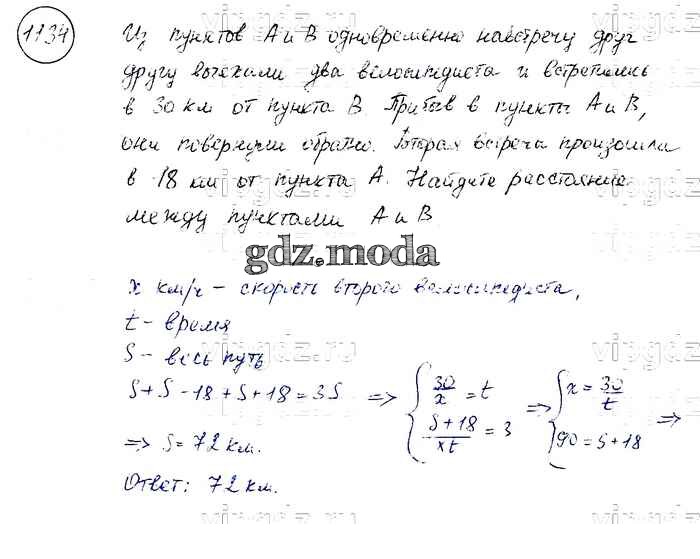 1134
Из пунктов А и В одновременно навстречу друг
другу выехали два велосипедиста и встретились
в 30 км от пункта В. Прибыв в пункты А и В,
они повернули обратно. Вторая встреча произошла
в 18 км от пункта А. Найдите расстояние
между пунктами А и В
gdz.moda
x км/ч – скорость второго велосипедиста,
t – время
S – весь путь
S + S - 18 + S + 18 = 3S => { 30/x = t => { x = 30/t =>
(S + 18)/xt = 3 90 = S + 18
=> S = 72 км.
Ответ: 72 км.
vipgdz.ru
vipgdz.ru
vipgdz.ru
vipgdz.ru
vipgdz.ru
vipgdz.ru
vipgdz.ru
vipgdz.ru